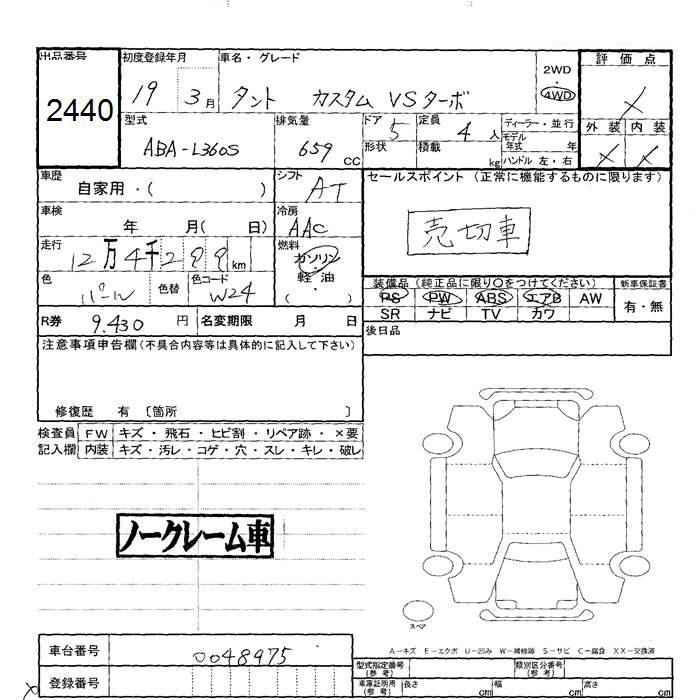 出品番号 初度登録年月 車名・グレード 2WD・4WD 評価点
2440 19 3月 タント カスタム VSターボ ×
型式 排気量 ドア 定員 ディーラー・並行 外装 内装
ABA-L360S 659 CC 5 4人 モデル年式 年 × ×
形状 積載 kg ハンドル 左・右
車歴 シフト セールスポイント(正常に機能するものに限ります)
自家用・( ) AT
車検 冷房
年 月( 日) AAC 売切車
走行 燃料
12万4千299km ガソリン・軽油
色 色替 色コード ( )
パール W24
装備品(純正品に限り○をつけてください) 新車保証書
PS PW ABS エアB AW 有・無
SR ナビ TV カワ
R券 9.430円 名変期限 月 日
後日品
注意事項申告欄(不具合内容等は具体的に記入して下さい)
修復歴 有 〔箇所 〕
検査員 FW キズ・飛石・ヒビ割・リペア跡・×要
記入欄 内装 キズ・汚レ・コゲ・穴・スレ・キレ・破レ
ノークレーム車
スペア
A-キズ E-エクボ U-凹み W-補修跡 S-サビ C-腐食 XX-交換済
車台番号 0048975
登録番号
型式指定番号(参考) 類別区分番号(参考)
車庫証明用(参考) 長さ cm 幅 cm 高さ cm